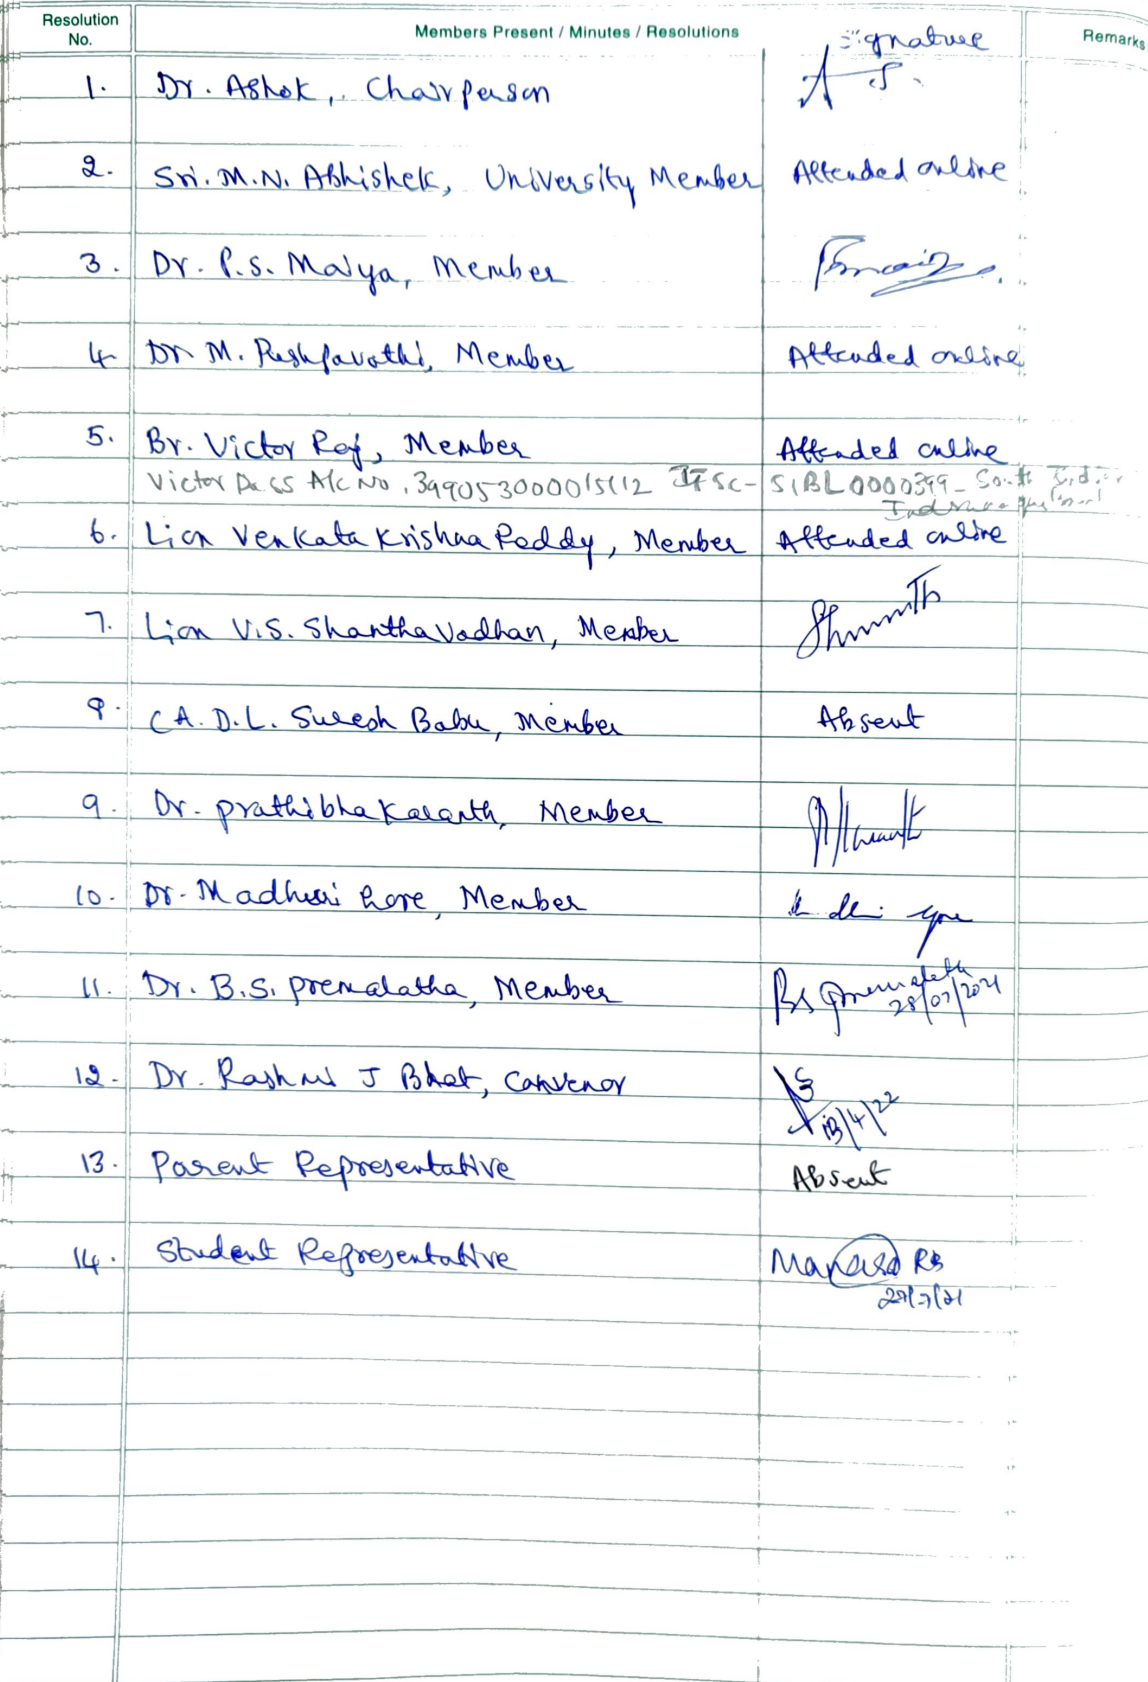 Resolution No. Members Present / Minutes / Resolutions Signature Remarks
1. Dr. Ashok, Chairperson
2. Sri. M.N. Abhishek, University Member Attended online
3. Dr. P.S. Maiya, Member
4. Dr. M. Pushpavathi, Member Attended online
5. Br. Victor Raj, Member Attended online
Victor A/c No. 3990530000 IFSC- SIBL0000399-
6. Lion Venkata Krishna Reddy, Member Attended online
7. Lion V.S. Shanthavadhan, Member
8. CA. D.L. Suresh Babu, Member Absent
9. Dr. prathibha Karanth, Member
10. Dr. Madhuri Gore, Member
11. Dr. B.S. premalatha, Member BS Premalatha
28/07/2021
12. Dr. Rashmi J Bhat, Convenor
13/4/22
13. Parent Representative Absent
14. Student Representative Manasa RB